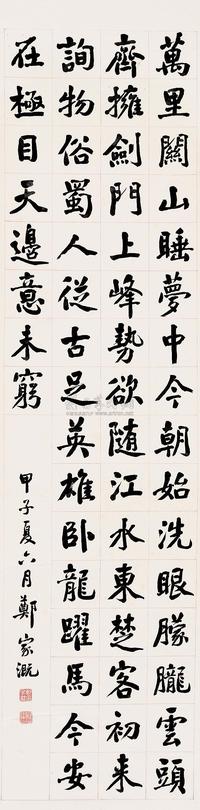 萬里關山睡夢中今朝始洗眼朦朧雲頭
齊擁劍門上峰勢欲随江水東楚客初来
詢物俗蜀人從古足英雄卧龍躍馬今安
在極目天邊意未窮
甲子夏六月鄭家溉